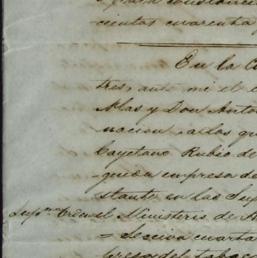 cientos cuarenta
En la C
tres, ante mi el
Mas y Don Anto
nacion, a los qu
Cayetano Rubio de
quia empresa de
stante en las Sup
el Ministerio de H
= Se sirva cuarta